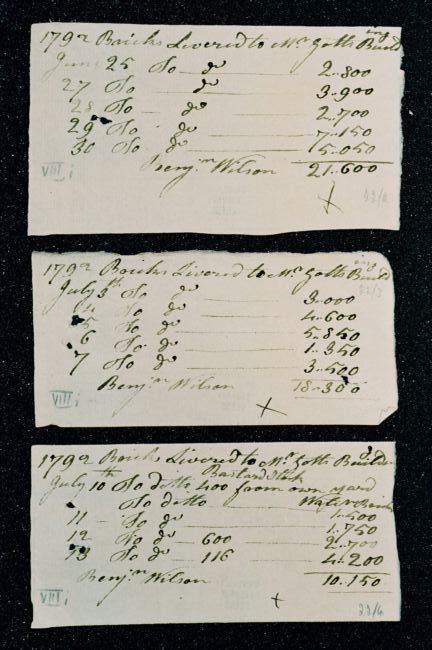 1792 Bricks Livered to Mr Gotts Build
ing
June 25 To do 2..800
27 To do 3..900
28 To do 2..700
29 To do 7..150
30 To do 5..050
Benjn Wilson 21..600
VIII i
22/2
1792 Bricks Livered to Mr Gotts Build
ing
July 3th To do 3..000
4 To do 4..600
5 5..850
6 To do 1..350
7 To do 3..500
Benjn Wilson 18..300
VIII i
22/3
1792 Brick Livered to Mr Gotts Build
Bastard Stock
July 10th To ditto 400 from own yard
To ditto Water Bricks
1..500
11 To do 1..750
12 To do 600 2..700
13 To do 116 4..200
Benjn Wilson 10..150
VIII i
22/4